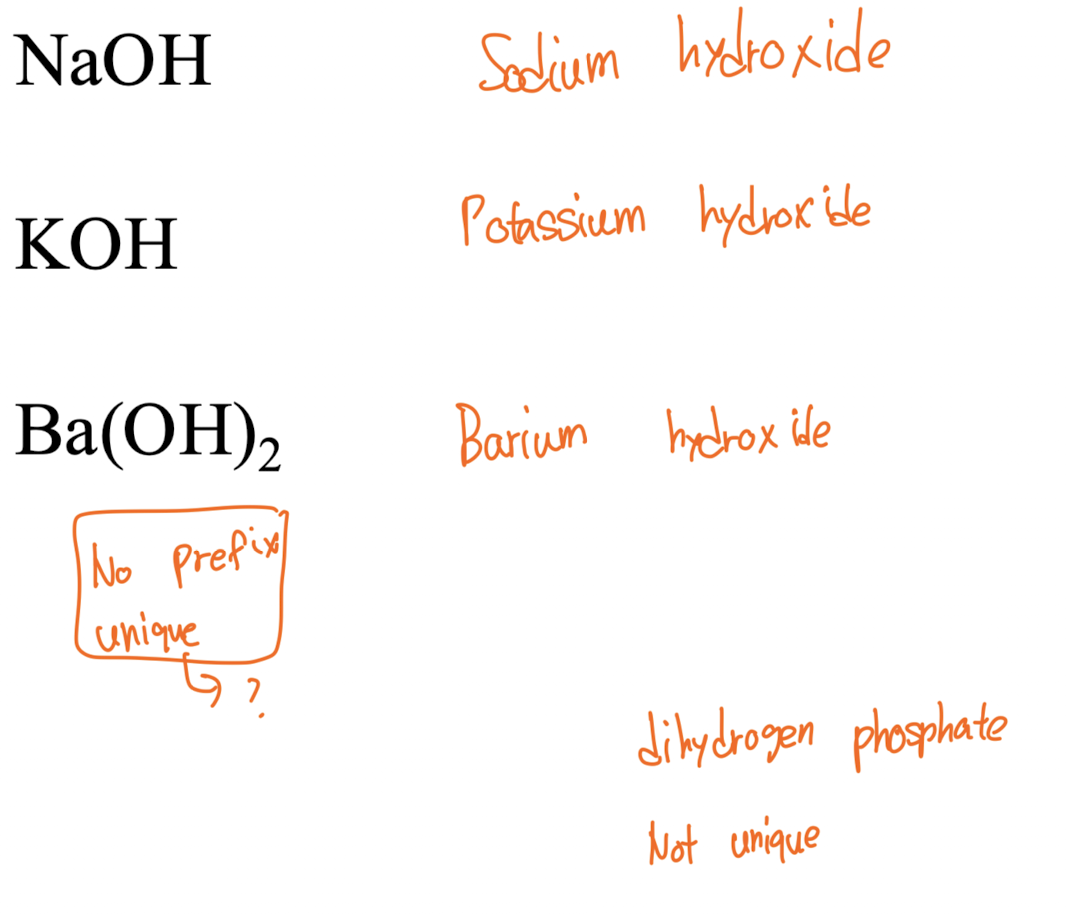 NaOH Sodium hydroxide
KOH Potassium hydroxide
Ba(OH)₂ Barium hydroxide
No prefix
unique
?
dihydrogen phosphate
Not unique